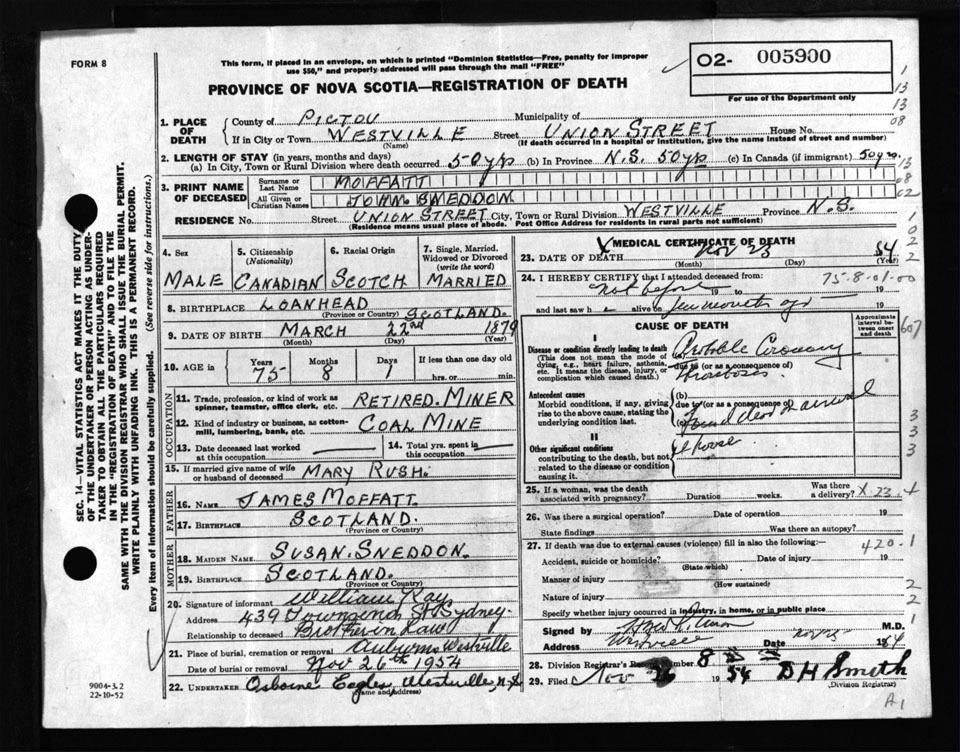 FORM 8
This form, if placed in an envelope, on which is printed "Dominion Statistics—Free, penalty for improper
use $50," and properly addressed will pass through the mail "FREE"
02- 005900
For use of the Department only
PROVINCE OF NOVA SCOTIA—REGISTRATION OF DEATH
1. PLACE OF DEATH
County of PICTOU Municipality of
If in City or Town WESTVILLE Street UNION STREET House No.
(Name) (If death occurred in a hospital or institution, give the name instead of street and number)
2. LENGTH OF STAY (in years, months and days)
(a) In City, Town or Rural Division where death occurred 50 yrs (b) In Province N.S. 50 yrs (c) In Canada (if immigrant) 50 yrs
3. PRINT NAME OF DECEASED
Surname or Last Name MOFFATT
All Given or Christian Names JOHN SNEDDON
RESIDENCE No. Street UNION STREET City, Town or Rural Division WESTVILLE Province N.S.
(Residence means usual place of abode. Post Office Address for residents in rural parts not sufficient)
4. Sex
MALE
5. Citizenship (Nationality)
CANADIAN
6. Racial Origin
SCOTCH
7. Single, Married, Widowed or Divorced (write the word)
MARRIED
8. BIRTHPLACE LOANHEAD SCOTLAND.
(Province or Country)
9. DATE OF BIRTH MARCH 22nd 1879
(Month) (Day) (Year)
10. AGE in
Years 75 Months 8 Days 1 If less than one day old
hrs. or min.
OCCUPATION
11. Trade, profession, or kind of work as spinner, teamster, office clerk, etc. RETIRED. MINER
12. Kind of industry or business, as cotton-mill, lumbering, bank, etc. COAL MINE
13. Date deceased last worked at this occupation
14. Total yrs. spent in this occupation
15. If married give name of wife or husband of deceased MARY RUSH.
FATHER
16. NAME JAMES MOFFATT.
17. BIRTHPLACE SCOTLAND.
(Province or Country)
MOTHER
18. MAIDEN NAME SUSAN. SNEDDON.
19. BIRTHPLACE SCOTLAND.
(Province or Country)
20. Signature of informant William Kay
Address 439 Townsend St Sydney.
Relationship to deceased Brother in Law
21. Place of burial, cremation or removal Auburn Westville
Date of burial or removal Nov 26th 1954
22. UNDERTAKER Osborne Eagles Westville, N.S
(Name and address)
MEDICAL CERTIFICATE OF DEATH
23. DATE OF DEATH Nov 23 54
(Month) (Day) (Year)
24. I HEREBY CERTIFY that I attended deceased from:
Not before 19 to 19
and last saw h alive on few months ago 19
75-8-01-00
CAUSE OF DEATH
Approximate interval between onset and death
I
Disease or condition directly leading to death
(This does not mean the mode of dying, e.g., heart failure, asthenia, etc. It means the disease, injury, or complication which caused death.)
(a) Probable Coronary
due to (or as a consequence of)
Thrombosis
Antecedent causes
Morbid conditions, if any, giving rise to the above cause, stating the underlying condition last.
(b)
due to (or as a consequence of)
(c)
II
Other significant conditions
contributing to the death, but not related to the disease or condition causing it.
25. If a woman, was the death associated with pregnancy? Duration weeks. Was there a delivery?
26. Was there a surgical operation? Date of operation 19
State findings Was there an autopsy?
27. If death was due to external causes (violence) fill in also the following:—
420.1
Accident, suicide or homicide? Date of injury 19
(State which)
Manner of injury
(How sustained)
Nature of injury
Specify whether injury occurred in industry, in home, or in public place
Signed by M.D.
Address Westville Date 1954
28. Division Registrar's Record Number 8
29. Filed Nov 1954 D H Smith
(Division Registrar)
A1
SEC. 14—VITAL STATISTICS ACT MAKES IT THE DUTY
OF THE UNDERTAKER OR PERSON ACTING AS UNDER-
TAKER TO OBTAIN ALL THE PARTICULARS REQUIRED
IN THE "REGISTRATION OF DEATH" AND TO FILE THE
SAME WITH THE DIVISION REGISTRAR WHO SHALL ISSUE THE BURIAL PERMIT.
WRITE PLAINLY WITH UNFADING INK. THIS IS A PERMANENT RECORD.
Every item of information should be carefully supplied. (See reverse side for instructions.)
9004-3.2
22-10-52